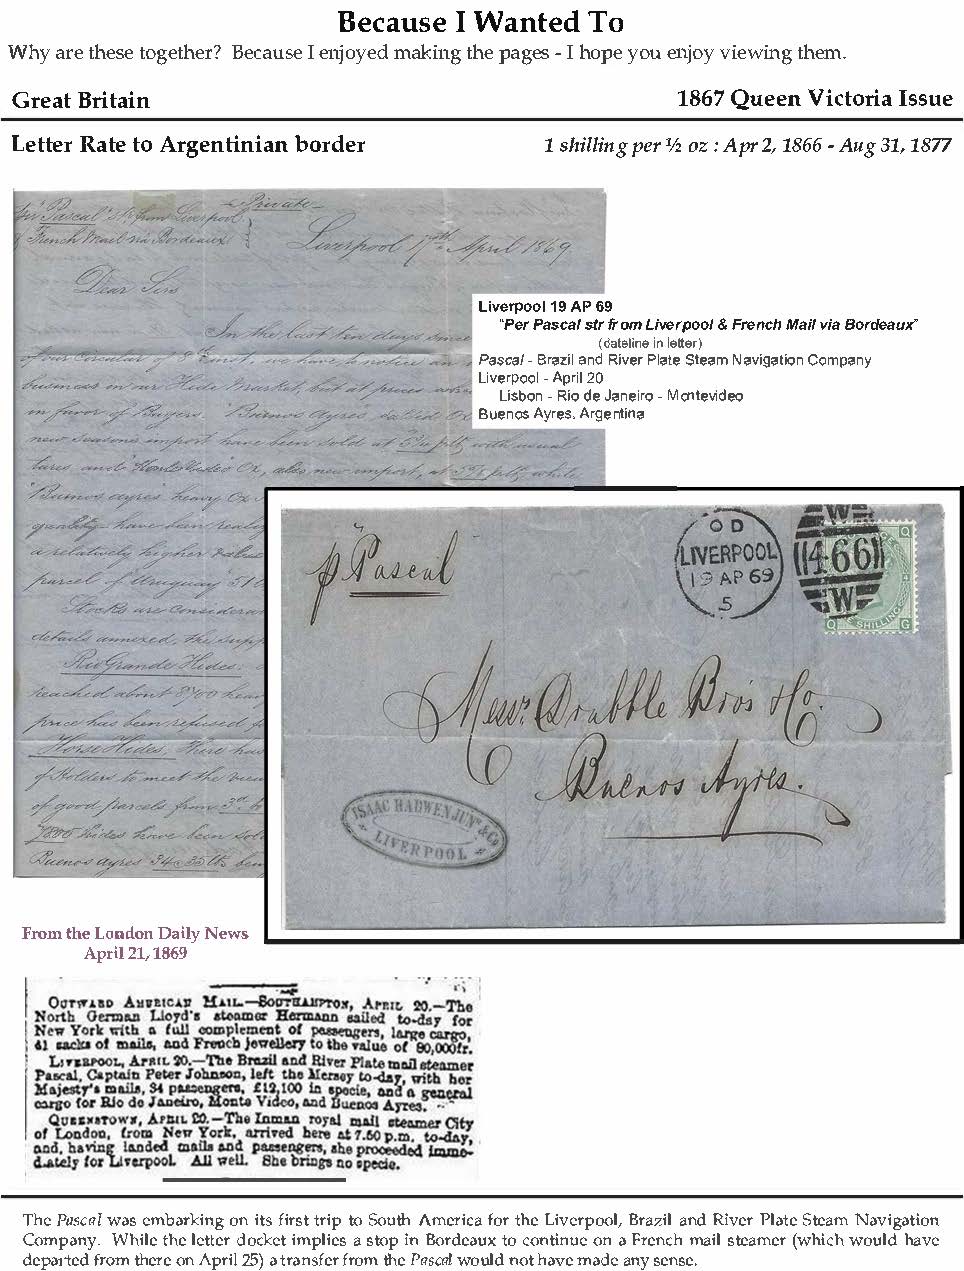 Because I Wanted To
Why are these together? Because I enjoyed making the pages - I hope you enjoy viewing them.
Great Britain
1867 Queen Victoria Issue
Letter Rate to Argentinian border
1 shilling per ½ oz : Apr 2, 1866 - Aug 31, 1877
"Pascal" str from Liverpool
French Mail via Bordeaux
Private
Liverpool 17th April 1869
Dear Sirs
In the last ten days since
of our Circular of 8th inst. we have to notice an
business in our Hide Market, but at prices
in favor of Buyers. Buenos Ayres
new seasons import have been sold at with usual
tares, and Ox, also new import, at while
Buenos Ayres heavy Ox
quality have been
a relatively higher value
parcel of Uruguay
Stocks are
details annexed, the
Rio Grande Hides:
reached about heavy
price has been refused
Horse Hides. There has
of Holders to meet the view
of good parcels from
Hides have been sol
Buenos Ayres
Liverpool 19 AP 69
"Per Pascal str from Liverpool & French Mail via Bordeaux"
(dateline in letter)
Pascal - Brazil and River Plate Steam Navigation Company
Liverpool - April 20
Lisbon - Rio de Janeiro - Montevideo
Buenos Ayres, Argentina
p "Pascal
OD
LIVERPOOL
19 AP 69
5
W
466
W
Q
Q
G
SHILLING
Messrs Drabble Bros & Co.
Buenos Ayres.
ISAAC HADWEN JUNR & Co
LIVERPOOL
From the London Daily News
April 21, 1869
OUTWARD AMERICAN MAIL.—SOUTHAMPTON, APRIL 20.—The
North German Lloyd's steamer Hermann sailed to-day for
New York with a full complement of passengers, large cargo,
41 sacks of mails, and French jewellery to the value of 80,000fr.
LIVERPOOL, APRIL 20.—The Brazil and River Plate mail steamer
Pascal, Captain Peter Johnson, left the Mersey to-day, with her
Majesty's mails, 34 passengers, £12,100 in specie, and a general
cargo for Rio de Janeiro, Monte Video, and Buenos Ayres.
QUEENSTOWN, APRIL 20.—The Inman royal mail steamer City
of London, from New York, arrived here at 7.50 p.m. to-day,
and, having landed mails and passengers, she proceeded imme-
diately for Liverpool. All well. She brings no specie.
The Pascal was embarking on its first trip to South America for the Liverpool, Brazil and River Plate Steam Navigation
Company. While the letter docket implies a stop in Bordeaux to continue on a French mail steamer (which would have
departed from there on April 25) a transfer from the Pascal would not have made any sense.